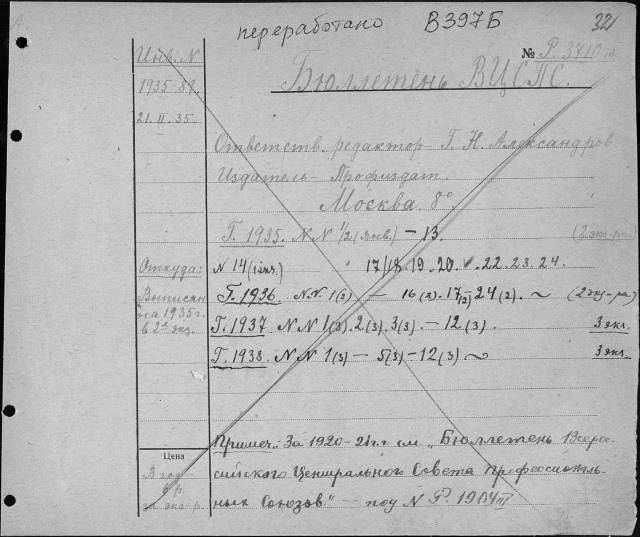 переработано В397Б 32
Инв. N
№ Р. 3710
1935-87.
Бюллетень ВЦСПС.
21.II.35.
Ответств. редактор - Г. Н. Александров.
Издатель - Профиздат.
Москва. 8°.
Г. 1935. NN 1/2 (янв.) - 13. (2 экз-ра)
Откуда: N 14 (1 экз.) 17/18. 19. 20. 22. 23. 24.
Выписан Г. 1936. NN. 1(2) - 16(2). 17(2)-24(2). ~ (2 экз-ра)
на 1935 г.
в 2х экз. Г. 1937. NN 1(3). 2(3). 3(3). - 12(3). 3 экз.
Г. 1938. NN 1(3) - 5(3) - 12(3) ~ 3 экз.
Примеч.: За 1920-21 гг см. „Бюллетень Всерос-
Цена
сийского Центрального Совета Профессиональ-
В год
р.
за экз-р. ных Союзов" - под N Р. 1904 III